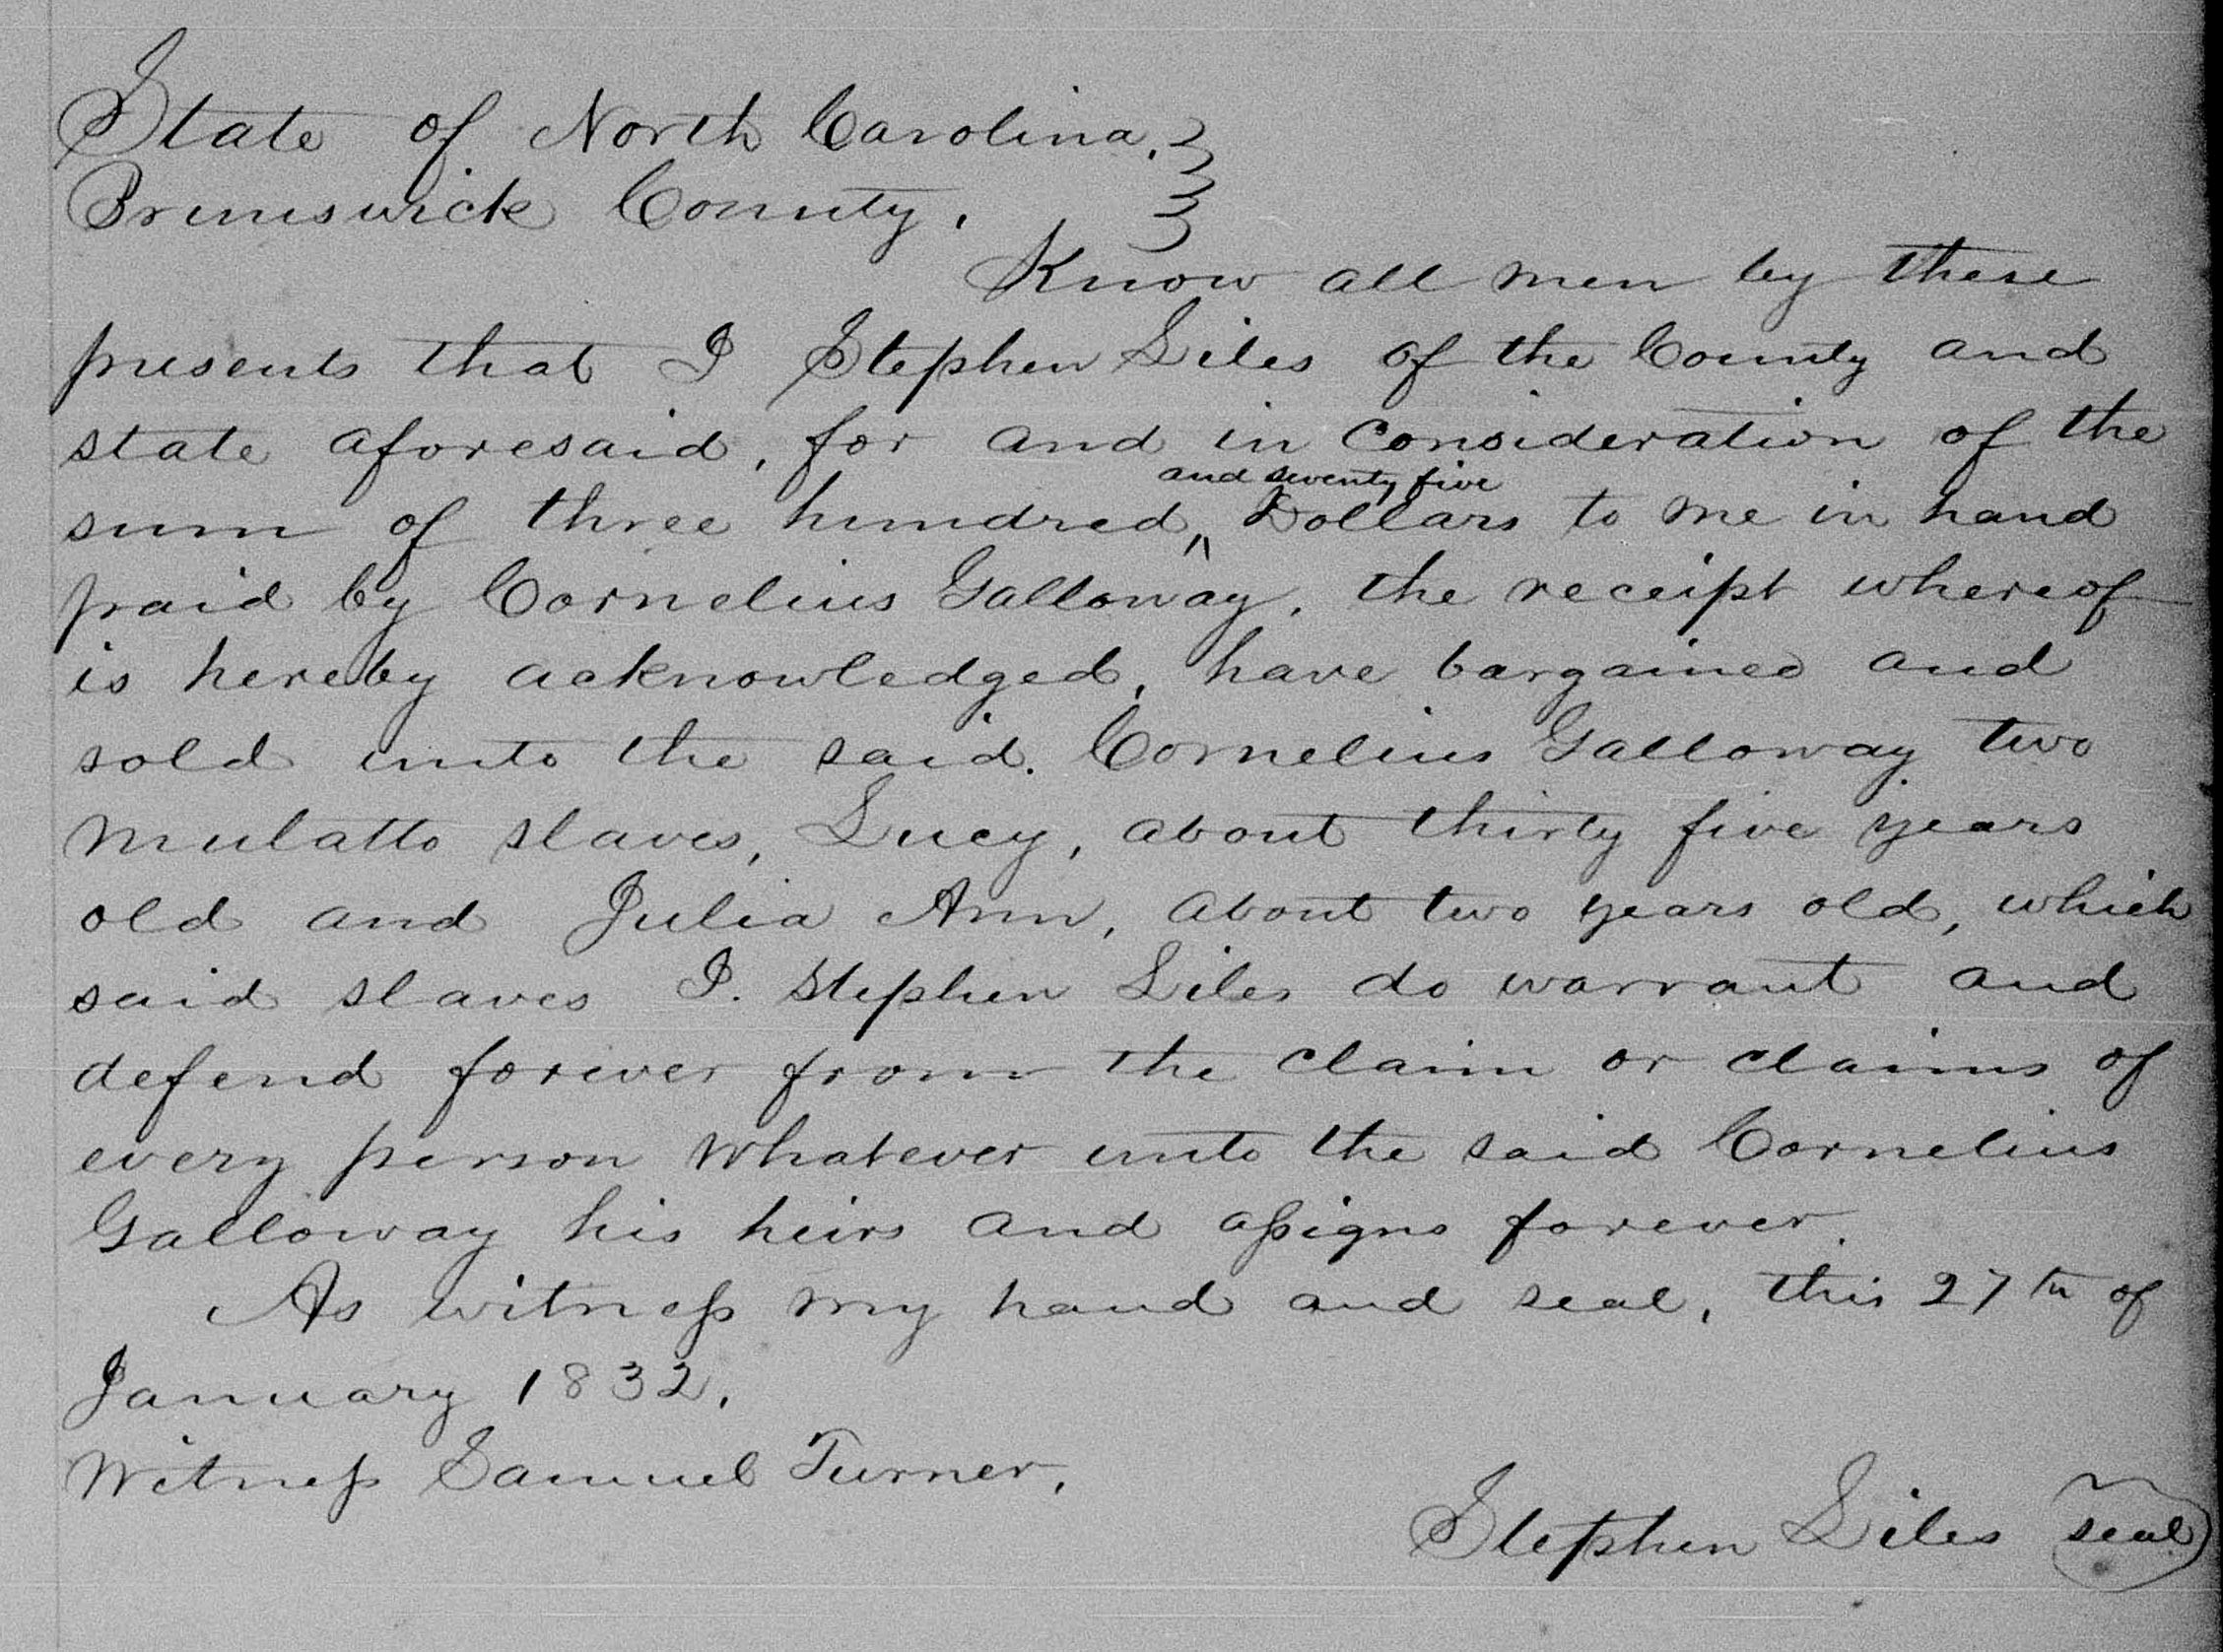 State of North Carolina.
Brunswick County.
Know all men by these
presents that I Stephen Liles of the County and
state aforesaid, for and in consideration of the
and seventy five
sum of three hundred, ^ Dollars to me in hand
paid by Cornelius Galloway, the receipt whereof
is hereby acknowledged, have bargained and
sold unto the said. Cornelius Galloway two
mulatto slaves, Lucy, about thirty five years
old and Julia Ann, about two years old, which
said slaves I. Stephen Liles do warrant and
defend forever from the claim or claims of
every person whatever unto the said Cornelius
Galloway his heirs and aſsigns forever.
As witneſs my hand and seal, this 27th of
January 1832.
Witneſs Samuel Turner.
Stephen Liles seal